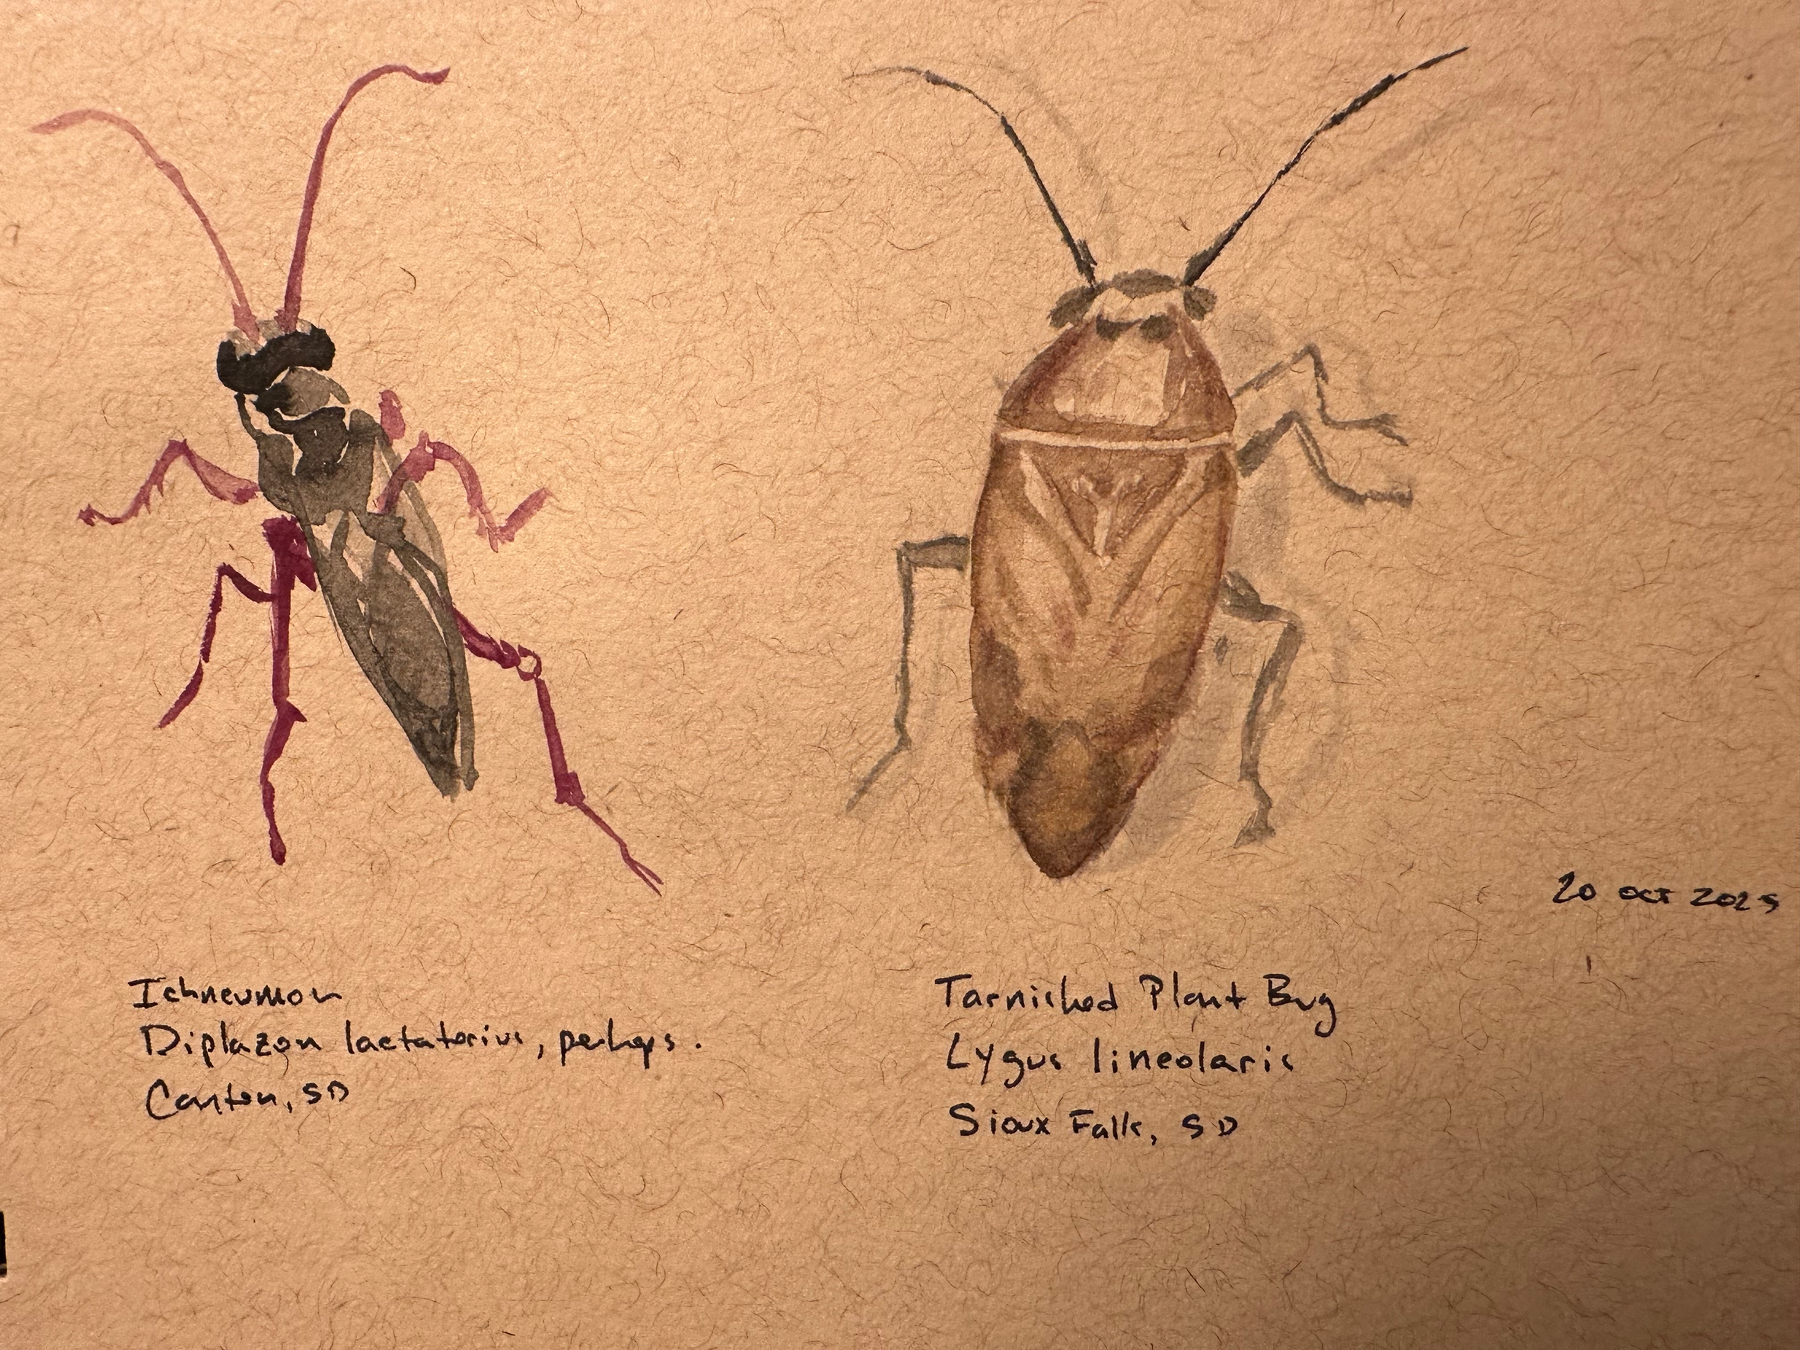 20 Oct 2025
Ichneumon
Diplazon laetatorius, perhaps.
Canton, SD
Tarnished Plant Bug
Lygus lineolaris
Sioux Falls, SD